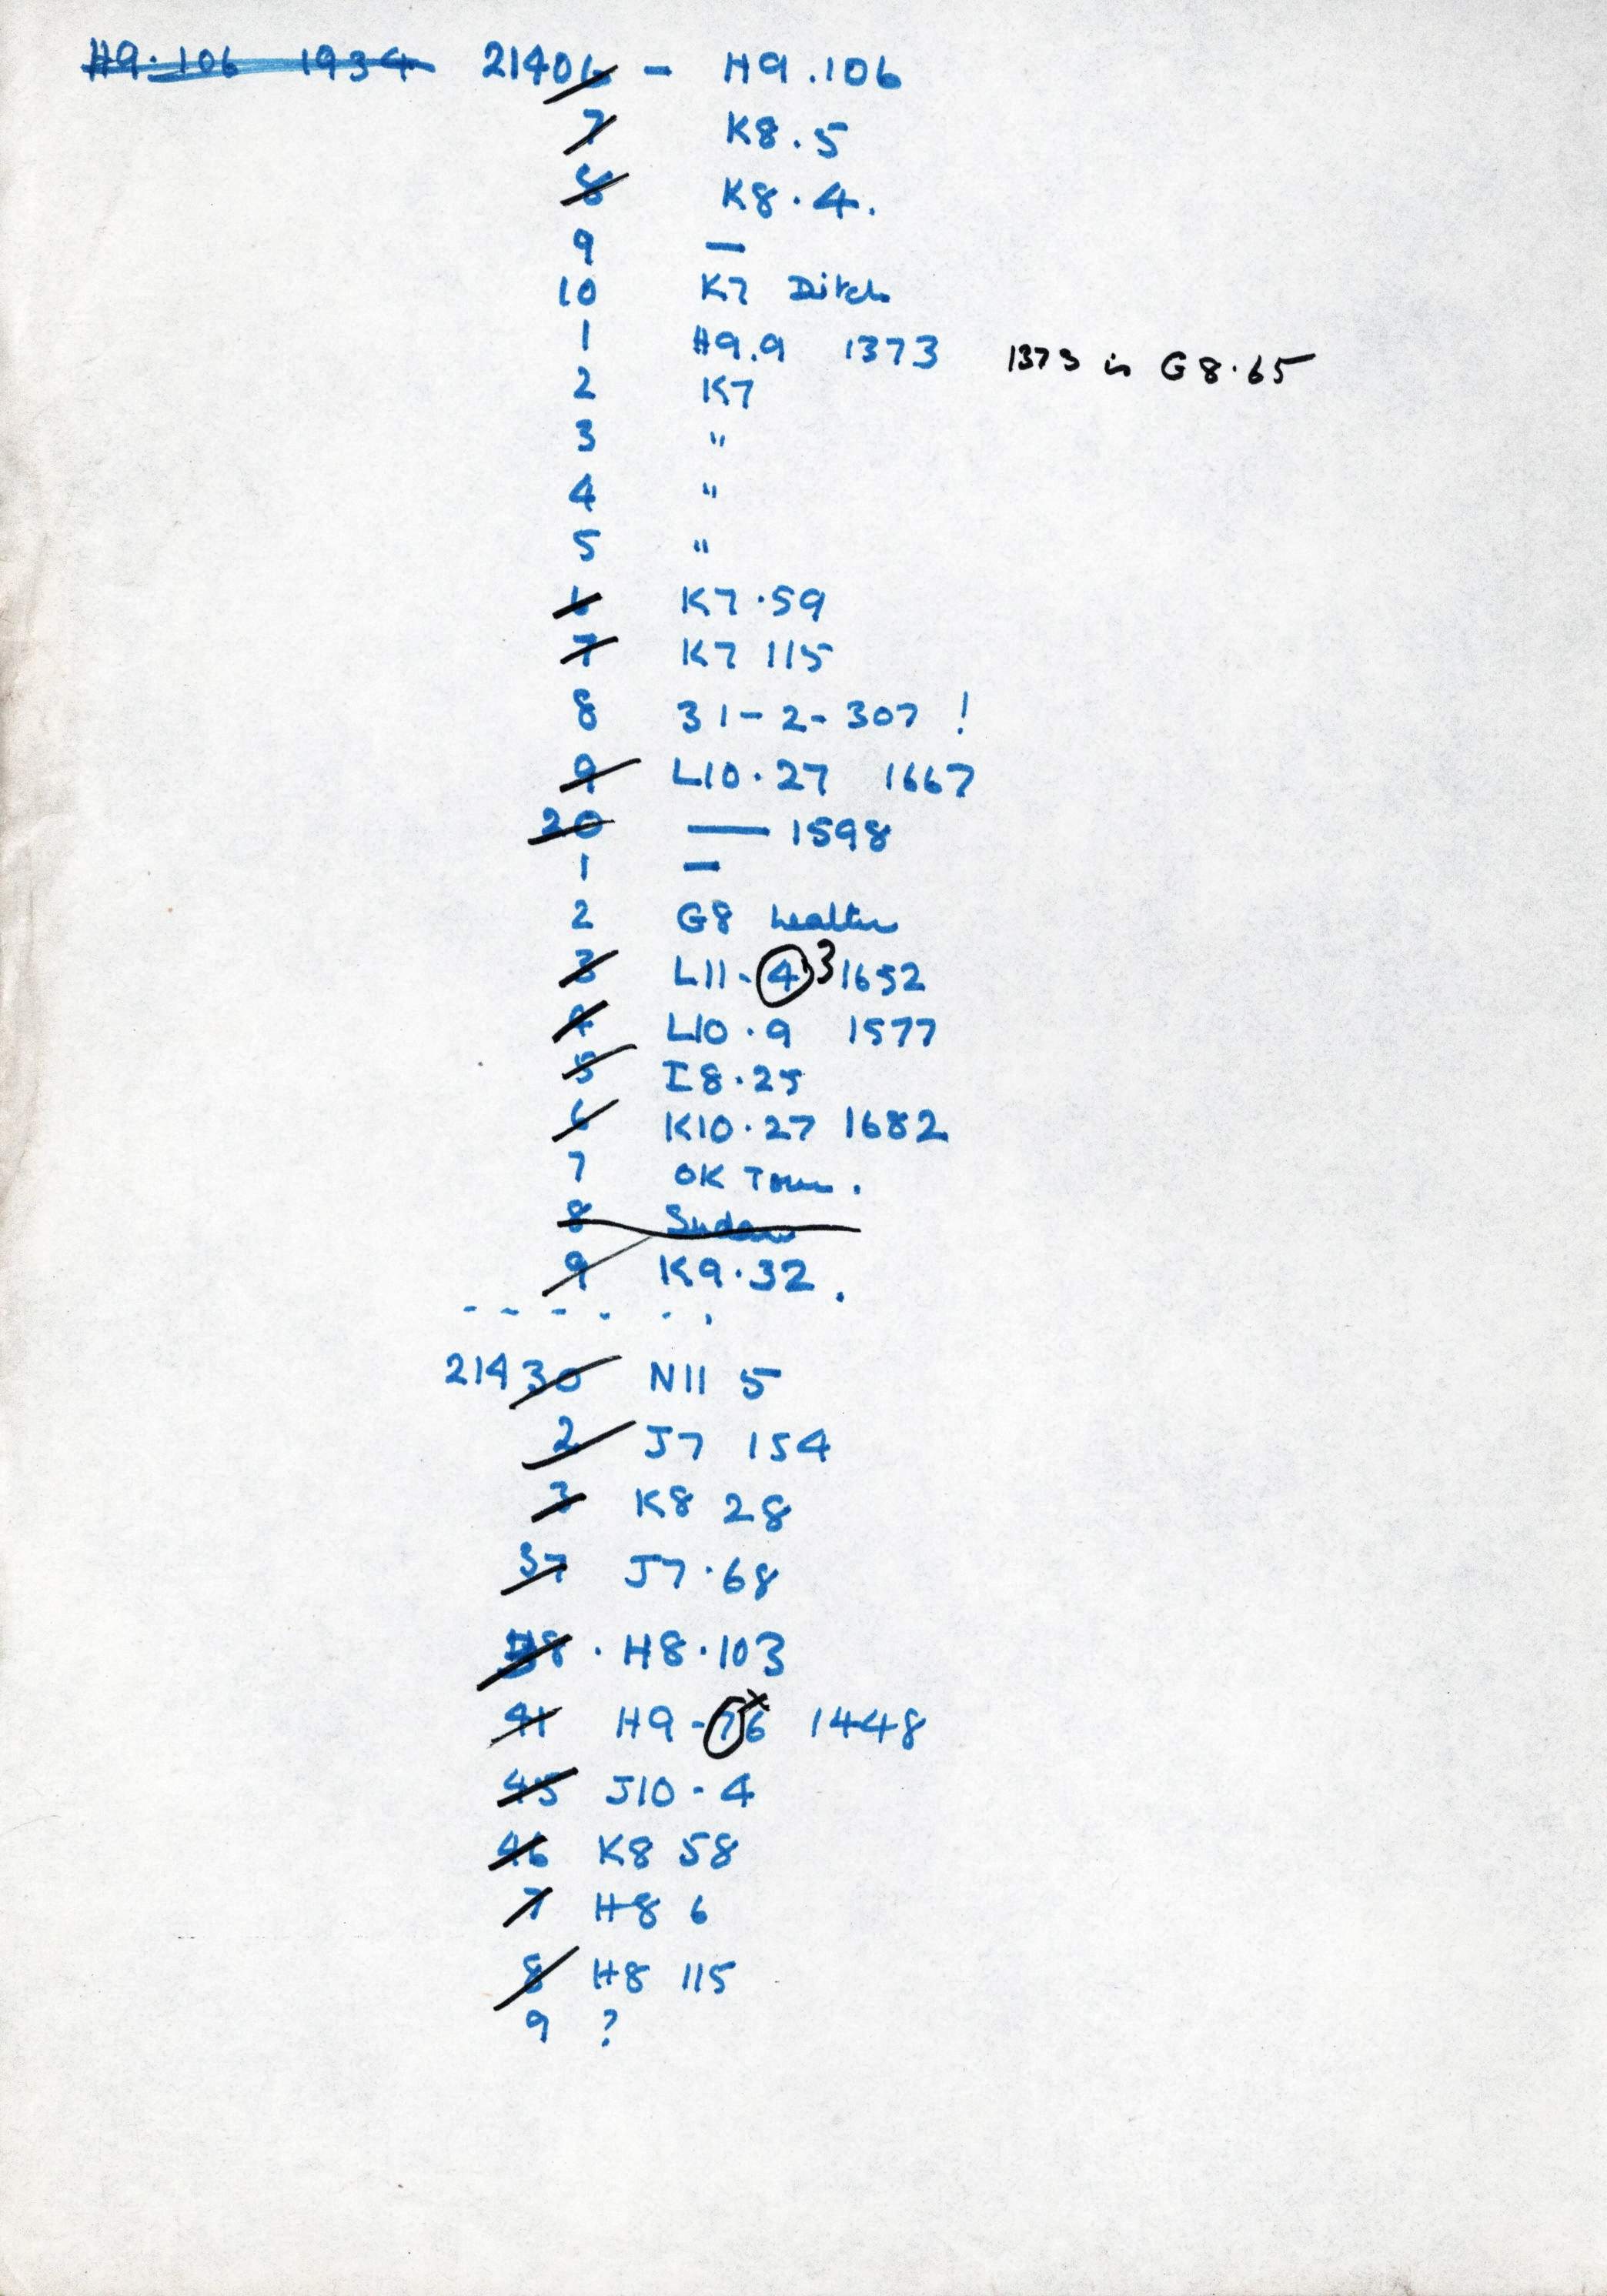 H9.106 1934 21406 - H9.106
7 K8.5
8 K8.4.
9 —
10 K7 Ditch
1 H9.9 1373 1373 is G8.65
2 K7
3 "
4 "
5 "
6 K7.59
7 K7 115
8 31-2-307 !
9 L10.27 1667
20 — 1598
1 —
2 G8
3 L11-4 3 1652
4 L10.9 1577
5 I8.25
6 K10.27 1682
7 OK Town.
8 Sudan
9 K9.32.
21430 N11 5
2 J7 154
3 K8 28
37 J7.68
38 . H8.103
41 H9-76 1448
45 J10-4
46 K8 58
7 H8 6
8 H8 115
9 ?